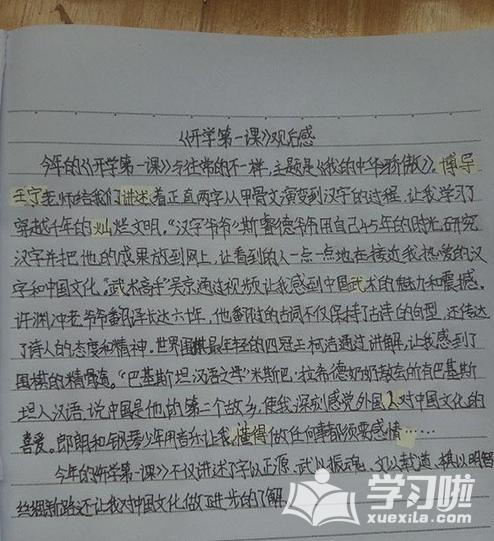 《开学第一课》观后感
今年的《开学第一课》与往常的不一样,主题是《我的中华骄傲》。博导
王宁老师给我们讲述着正直两字从甲骨文演变到汉字的过程,让我学习了
穿越千年的灿烂文明。“汉字爷爷”斯睿德爷爷用自己45年的时光,研究
汉字并把他的成果放到网上,让看到的人一点一点地在接近我热爱的汉
字和中国文化。“武术高手”吴京通过视频让我感到中国武术的魅力和震撼。
许渊冲老爷爷翻译长达六十年,他翻译过的古词不仅保持了古诗的句型,还传达
了诗人的态度和精神。世界围棋最年轻的四冠王柯洁通过讲解,让我感到了
围棋的精髓道。“巴基斯坦汉语之母”米斯巴·拉希德奶奶教会所有巴基斯
坦人汉语,说中国是他的第二个故乡,使我深刻感觉外国人对中国文化的
喜爱。郎朗和钢琴少年用音乐让我懂得做任何事都须要感情……
今年的《开学第一课》不仅讲述了字以正源,武以振魂,文以载道,棋以明智
丝绸新路还让我对中国文化做了进步的了解
学习啦
xuexila.com